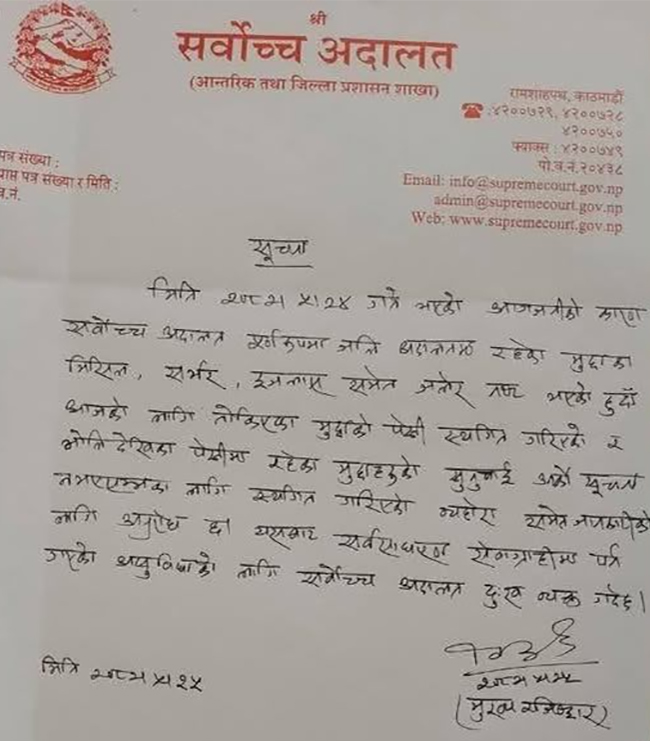 श्री
सर्वोच्च अदालत
(आन्तरिक तथा जिल्ला प्रशासन शाखा)
रामशाहपथ, काठमाडौं
☎ : ४२००७२९, ४२००७२८
४२००७५०
फ्याक्स : ४२००७४९
पो.व.नं. २०४३८
Email: info@supremecourt.gov.np
admin@supremecourt.gov.np
Web: www.supremecourt.gov.np
पत्र संख्या :
पत्र संख्या र मिति :
नं.
सूचना
मिति २०८२।५।२४ गते भएको आगजनीको कारण
सर्वोच्च अदालत पूर्णरूपमा जलि अदालतमा रहेका मुद्दाका
मिसिल, सर्भर, इजलास समेत जलेर नष्ट भएको हुदाँ
आजको लागि तोकिएका मुद्दाको पेशी स्थगित गरिएको र
भोलि देखिका पेशीमा रहेका मुद्दाहरुको सुनुवाई अर्को सूचना
नभएसम्मका लागि स्थगित गरिएको व्यहोरा समेत जानकारीको
लागि अनुरोध छ। यसबाट सर्वसाधारण सेवाग्राहीमा पर्न
गएको असुविधाको लागि सर्वोच्च अदालत दुःख व्यक्त गर्दछ।
मिति २०८२।५।२५
२०८२।५।२५
(मुख्य रजिष्ट्रार)